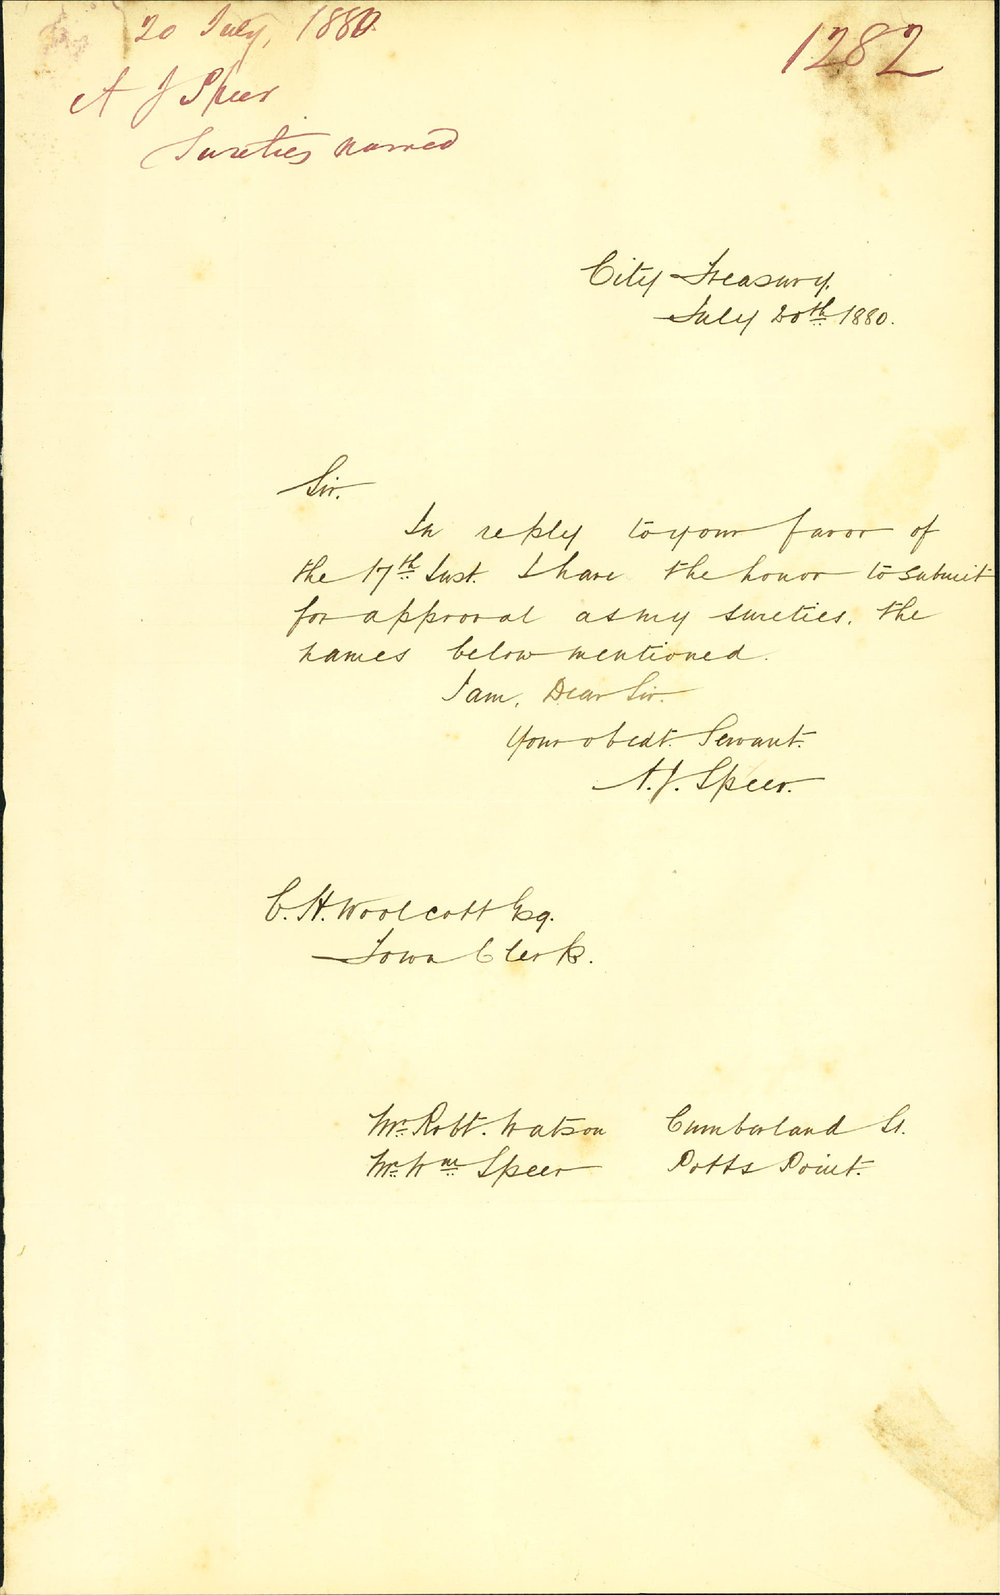 20 July, 1880
1282
A J Speer
Sureties named
City Treasury.
July 20th 1880.
Sir.
In reply to your favor of
the 17th Inst. I have the honor to submit
for approval as my sureties. the
names below mentioned.
I am, Dear Sir.
Your obedt. Servant.
A.J. Speer.
C. H. Woolcott Esq.
Town Clerk.
Mr. Robt. Watson Cumberland St.
Mr. Wm Speer Potts Point.